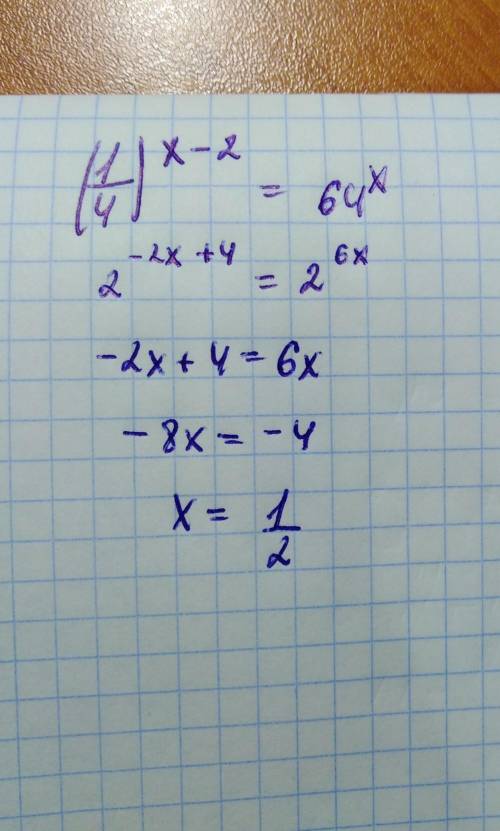 (1/4)^(x-2) = 64^x
2^(-2x+4) = 2^(6x)
-2x+4=6x
-8x=-4
x=1/2